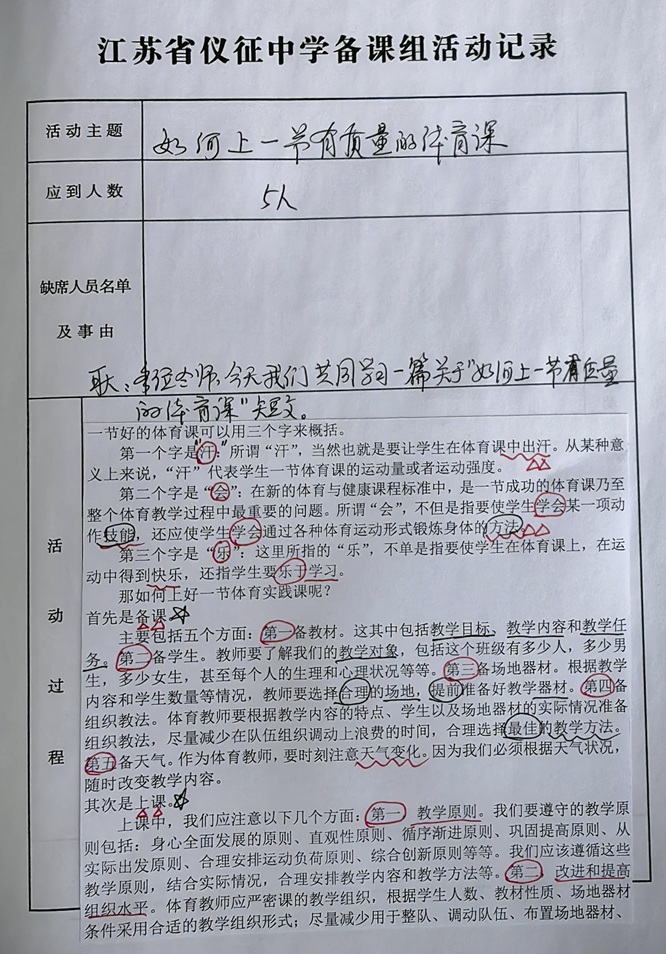 江苏省仪征中学备课组活动记录
活动主题
如何上一节有质量的体育课
应到人数
5人
缺席人员名单
及事由
各位老师，今天我们共同学习一篇关于“如何上一节有质量
的体育课”短文。
活动过程
一节好的体育课可以用三个字来概括。
第一个字是“汗”：所谓“汗”，当然也就是要让学生在体育课中出汗。从某种意
义上来说，“汗”代表学生一节体育课的运动量或者运动强度。
第二个字是“会”：在新的体育与健康课程标准中，是一节成功的体育课乃至
整个体育教学过程中最重要的问题。所谓“会”，不但是指要使学生学会某一项动
作技能，还应使学生学会通过各种体育运动形式锻炼身体的方法。
第三个字是“乐”：这里所指的“乐”，不单是指要使学生在体育课上，在运
动中得到快乐，还指学生要乐于学习。
那如何上好一节体育实践课呢？
首先是备课
主要包括五个方面：第一备教材。这其中包括教学目标、教学内容和教学任
务。第二备学生。教师要了解我们的教学对象，包括这个班级有多少人，多少男
生，多少女生，甚至每个人的生理和心理状况等等。第三备场地器材。根据教学
内容和学生数量等情况，教师要选择合理的场地，提前准备好教学器材。第四备
组织教法。体育教师要根据教学内容的特点、学生以及场地器材的实际情况准备
组织教法，尽量减少在队伍组织调动上浪费的时间，合理选择最佳的教学方法。
第五备天气。作为体育教师，要时刻注意天气变化。因为我们必须根据天气状况，
随时改变教学内容。
其次是上课。
上课中，我们应注意以下几个方面：第一 教学原则。我们要遵守的教学原
则包括：身心全面发展的原则、直观性原则、循序渐进原则、巩固提高原则、从
实际出发原则、合理安排运动负荷原则、综合创新原则等等。我们应该遵循这些
教学原则，结合实际情况，合理安排教学内容和教学方法等。第二 改进和提高
组织水平。体育教师应严密课的教学组织，根据学生人数、教材性质、场地器材
条件采用合适的教学组织形式；尽量减少用于整队、调动队伍、布置场地器材、